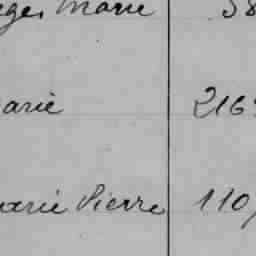 Marie 58
arie 216
arie Pierre 110